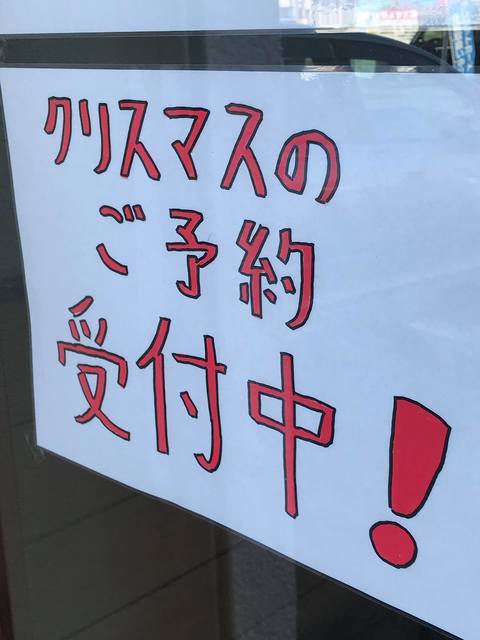 クリスマスの
ご予約
受付中!